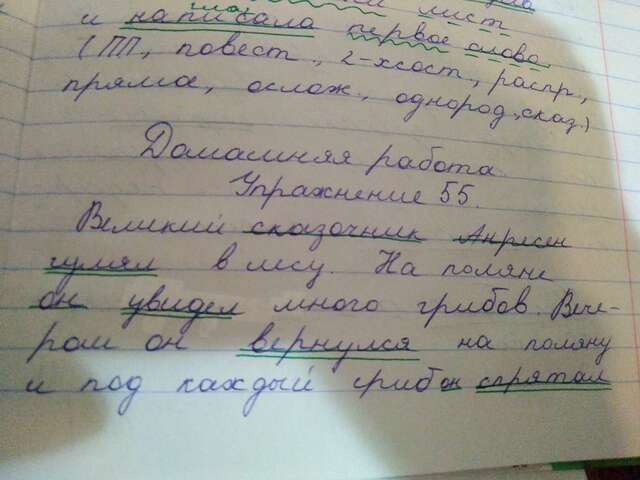 лист
и написала первое слово
(ПП, повест., 2-хсост., распр.,
прямое, ослож., однород. сказ.)
Домашняя работа.
Упражнение 55.
Великий сказочник Анресен
гулял в лесу. На поляне
он увидел много грибов. Вече-
ром он вернулся на поляну
и под каждый гриб он спрятал